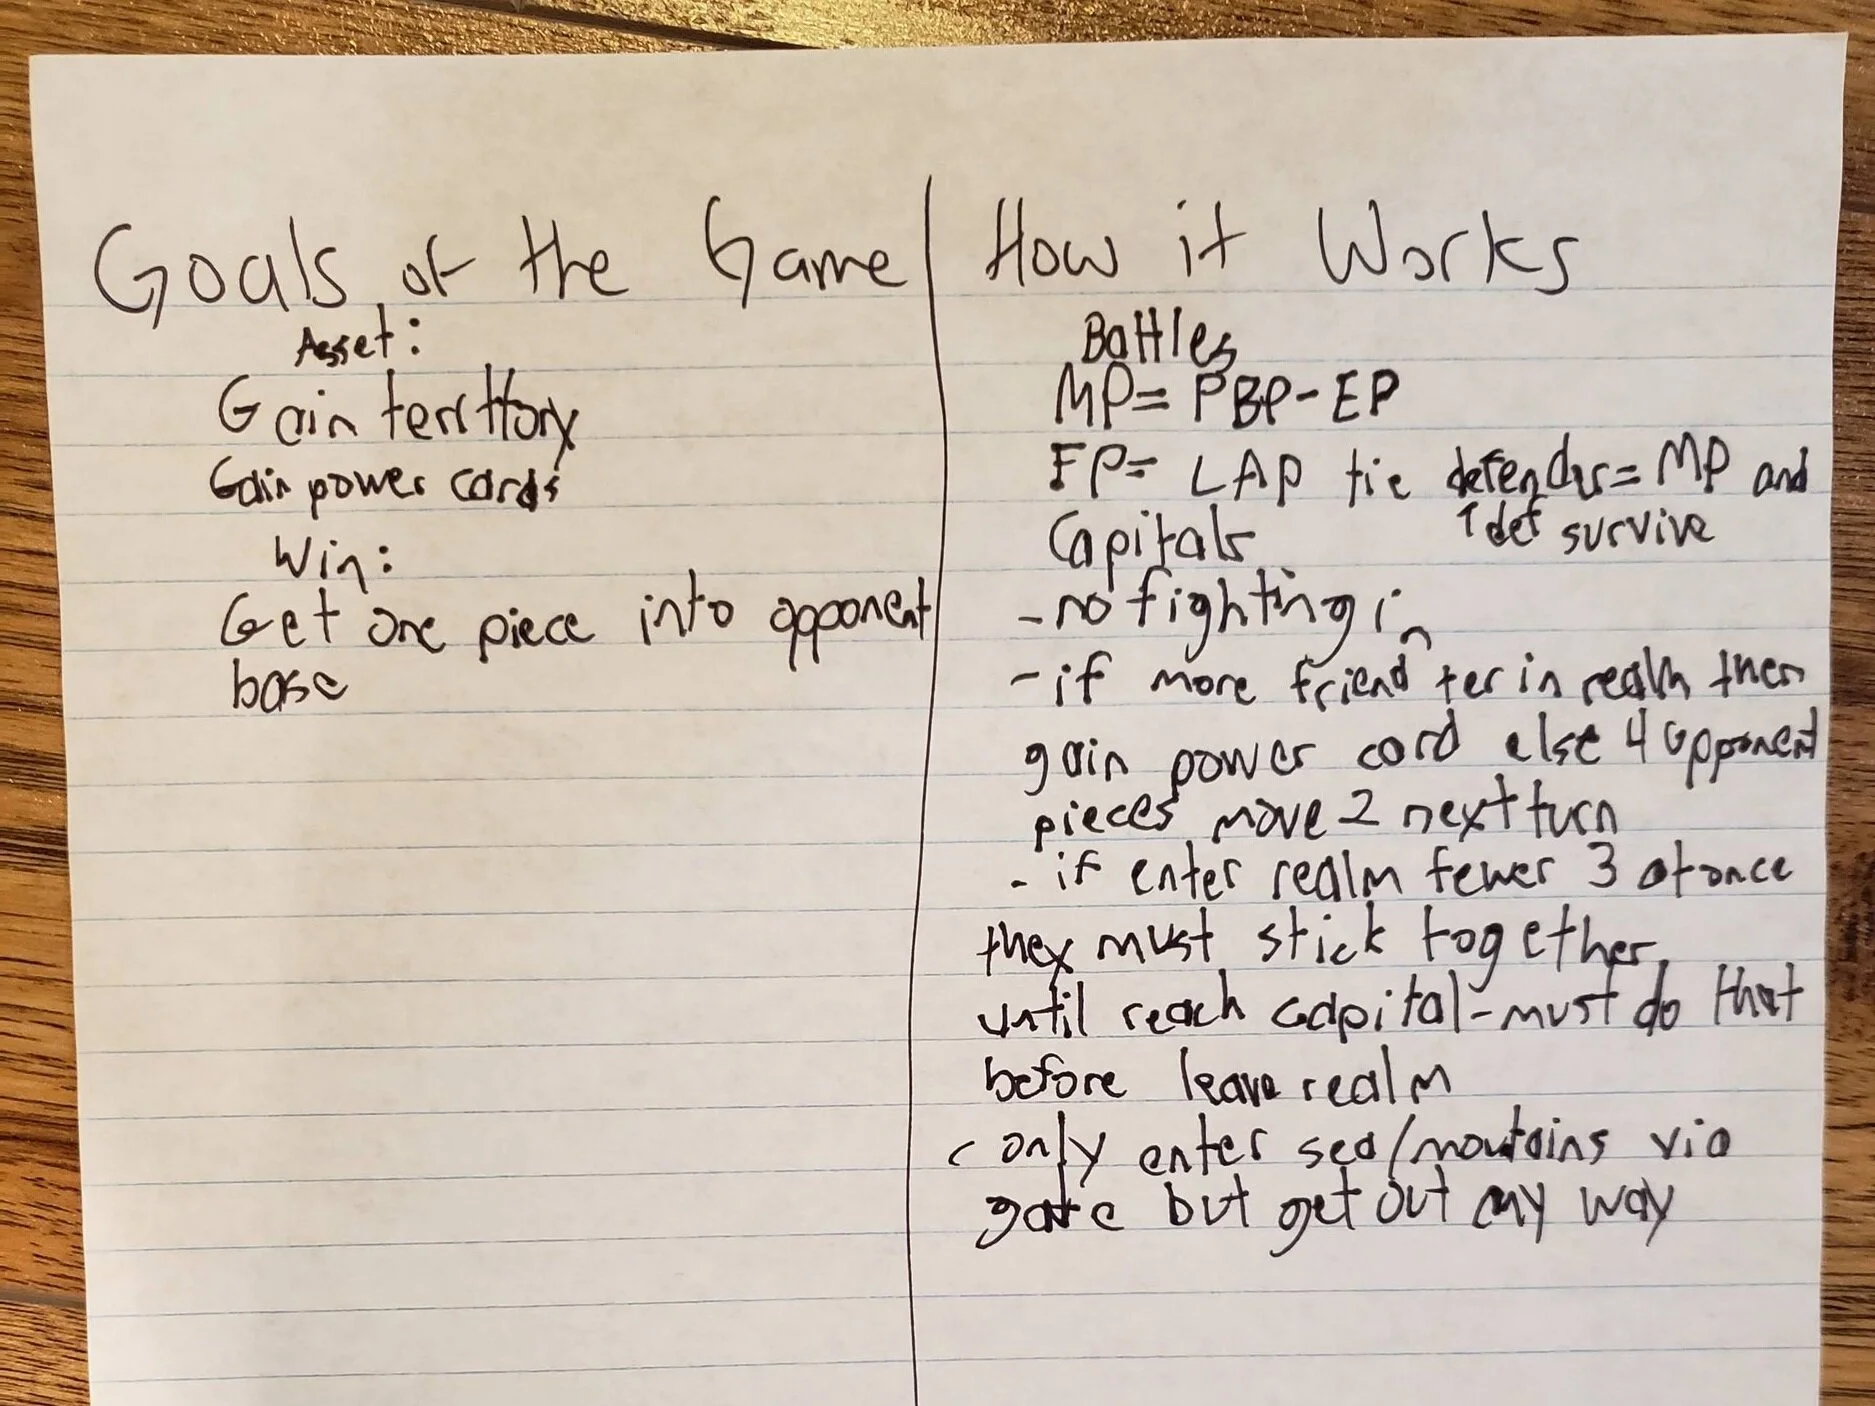 Goals of the Game
Asset:
Gain territory
Gain power cards
Win:
Get one piece into opponent
base
How it Works
Battles
MP= PBP-EP
FP= LAP tie defender= MP and
1 def survive
Capitals
-no fighting in
-if more friend ter in realm then
gain power card else 4 opponent
pieces move 2 next turn
- if enter realm fewer 3 at once
they must stick together
until reach capital-must do that
before leave realm
- only enter sea/moutains via
gate but get out my way